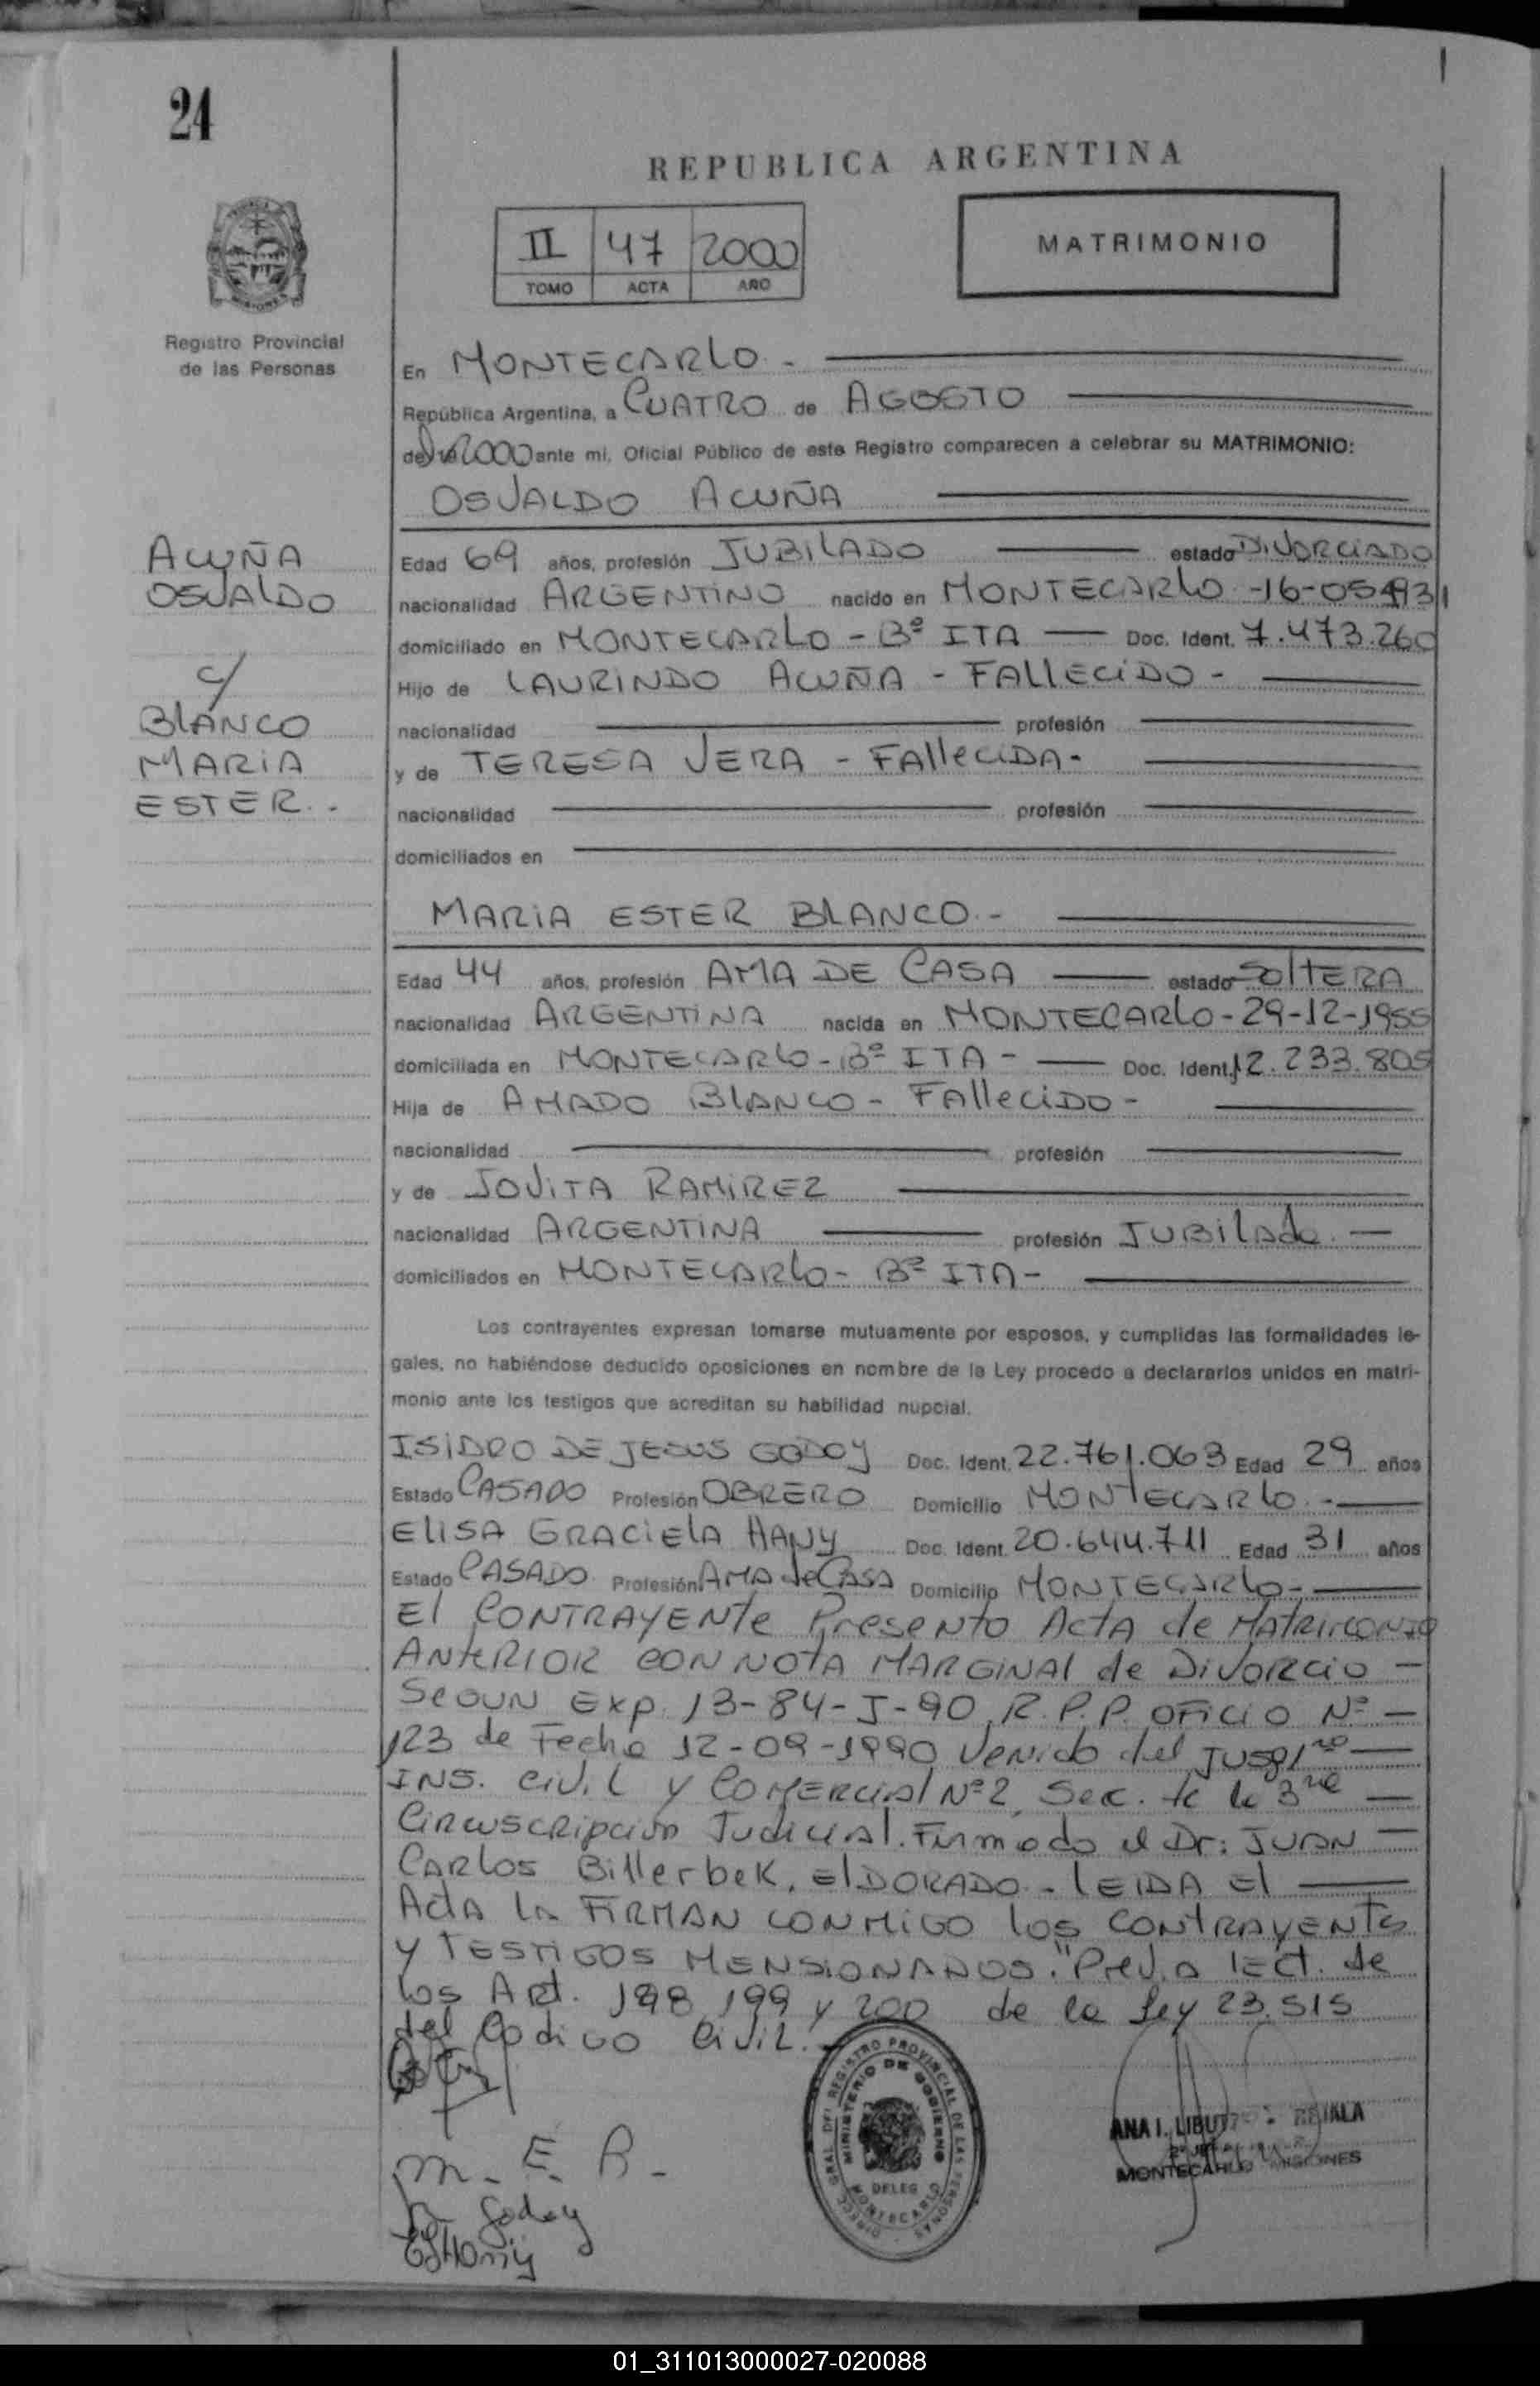 24
REPUBLICA ARGENTINA
II 47 2000
TOMO ACTA AÑO
MATRIMONIO
Registro Provincial
de las Personas
En MONTECARLO. -
República Argentina, a CUATRO de AGOSTO
de 2000 ante mi, Oficial Público de este Registro comparecen a celebrar su MATRIMONIO:
OSVALDO ACUÑA
ACUÑA
OSVALDO
c/
BLANCO
MARIA
ESTER. -
Edad 69 años, profesión JUBILADO estado DIVORCIADO
nacionalidad ARGENTINO nacido en MONTECARLO -16-05-1931
domiciliado en MONTECARLO - Bº ITA Doc. Ident. 7.473.260
Hijo de LAURINDO ACUÑA - FALLECIDO -
nacionalidad profesión
y de TERESA VERA - FALLECIDA -
nacionalidad profesión
domiciliados en
MARIA ESTER BLANCO. -
Edad 44 años, profesión AMA DE CASA estado SOLTERA
nacionalidad ARGENTINA nacida en MONTECARLO - 29-12-1955
domiciliada en MONTECARLO - Bº ITA - Doc. Ident. 12.233.805
Hija de AMADO BLANCO - FALLECIDO -
nacionalidad profesión
y de JOVITA RAMIREZ
nacionalidad ARGENTINA profesión JUBILADA. -
domiciliados en MONTECARLO - Bº ITA -
Los contrayentes expresan tomarse mutuamente por esposos, y cumplidas las formalidades le-
gales, no habiéndose deducido oposiciones en nombre de la Ley procedo a declararlos unidos en matri-
monio ante los testigos que acreditan su habilidad nupcial.
ISIDRO DE JESUS GODOY Doc. Ident. 22.761.063 Edad 29 años
Estado CASADO Profesión OBRERO Domicilio MONTECARLO. -
ELISA GRACIELA HANY Doc. Ident. 20.644.711 Edad 31 años
Estado CASADO Profesión AMA de CASA Domicilio MONTECARLO -
El CONTRAYENTE Presento ACTA de MATRIMONIO
ANTERIOR CON NOTA MARGINAL de DIVORCIO -
SEGUN Exp. 13-84-J-90, R.P.P. OFICIO Nº -
123 de Fecha 12-09-1990 Venido del
INS. CIVIL Y COMERCIAL Nº 2, Sec. de la 3ra -
Circuscripcion Judicial. Firmado el Dr: JUAN -
CARLOS Billerbek, ELDORADO - LEIDA El
ActA la FIRMAN CONMIGO los CONTRAYENTES
Y TESTIGOS MENSIONADOS. "Previa lect. de
los Art. 198, 199 y 200 de la Ley 23.515
del Codigo Civil. -
DIRECC. GRAL. DEL REGISTRO PROVINCIAL DE LAS PERSONAS
MINISTERIO DE GOBIERNO
DELEG
MONTECARLO
ANA I.
MONTECARLO MISIONES
M. E. B.
Godoy
EGHany
01_311013000027-020088